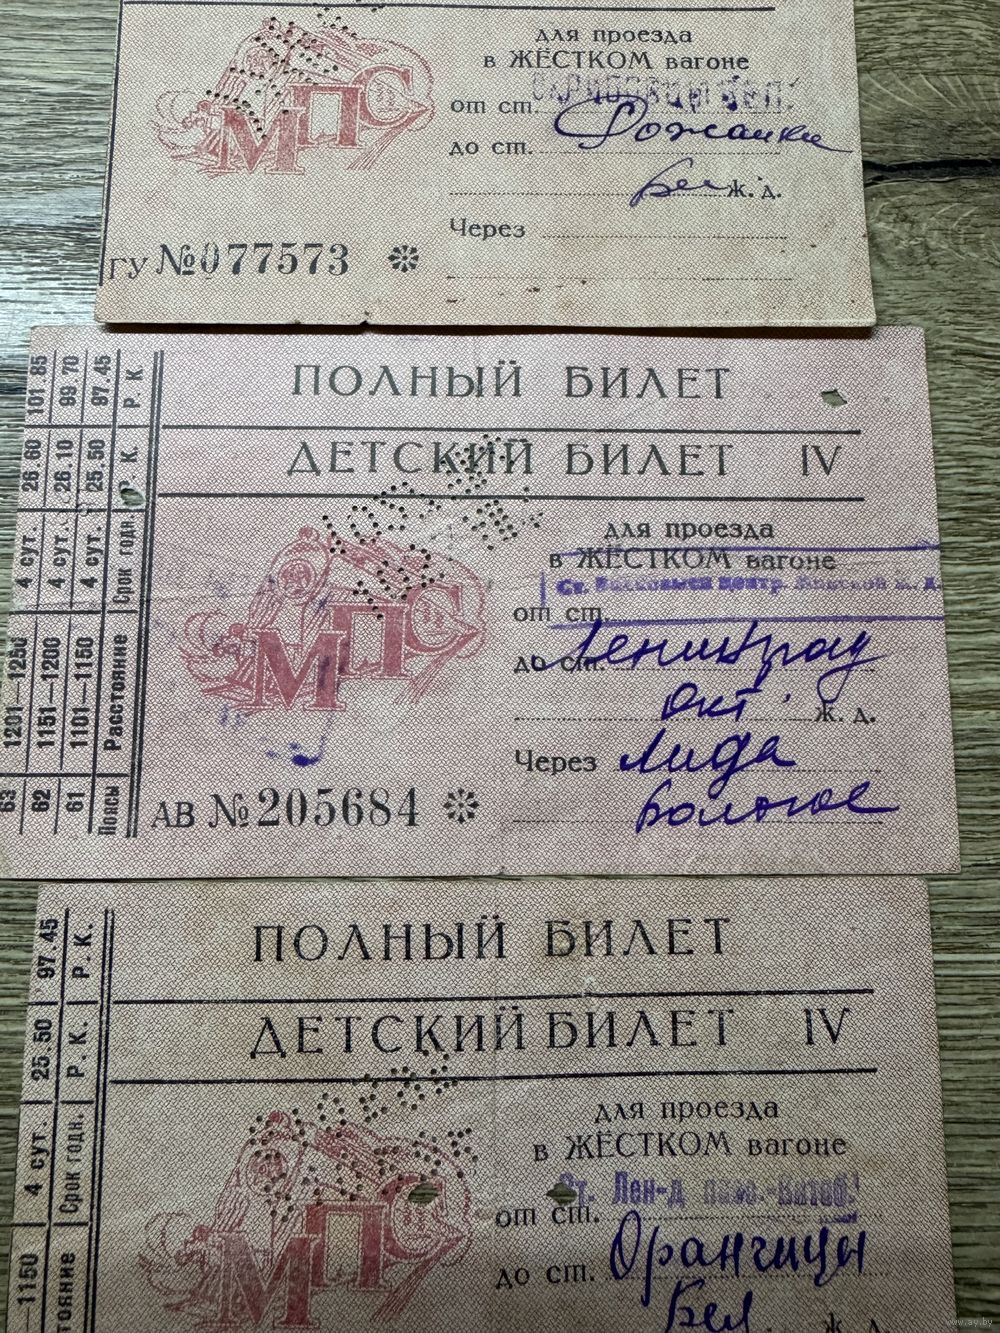 для проезда
в ЖЁСТКОМ вагоне
от ст.
до ст. Рожанка
Бел ж. д.
Через
МПС
ГУ №077573
ПОЛНЫЙ БИЛЕТ
ДЕТСКИЙ БИЛЕТ IV
для проезда
в ЖЁСТКОМ вагоне
Ст. Волковыск центр. Минской ж. д.
от ст.
до ст. Ленинград
Окт. ж. д.
Через Лида
Бологое
МПС
АВ №205684
101.85 99.70 97.45 Р. К.
26.60 26.10 25.50 Р. К.
4 сут. 4 сут. 4 сут. Срок годн.
1201—1250 1151—1200 1101—1150 Расстояние
63 62 61 Поясы
ПОЛНЫЙ БИЛЕТ
ДЕТСКИЙ БИЛЕТ IV
для проезда
в ЖЁСТКОМ вагоне
Ст. Лен-д пасс.-Витеб.
от ст.
до ст. Оранчицы
Бел ж. д.
МПС
97.45 Р. К.
25.50 Р. К.
4 сут. Срок годн.
—1150 тояние
www.ay.by